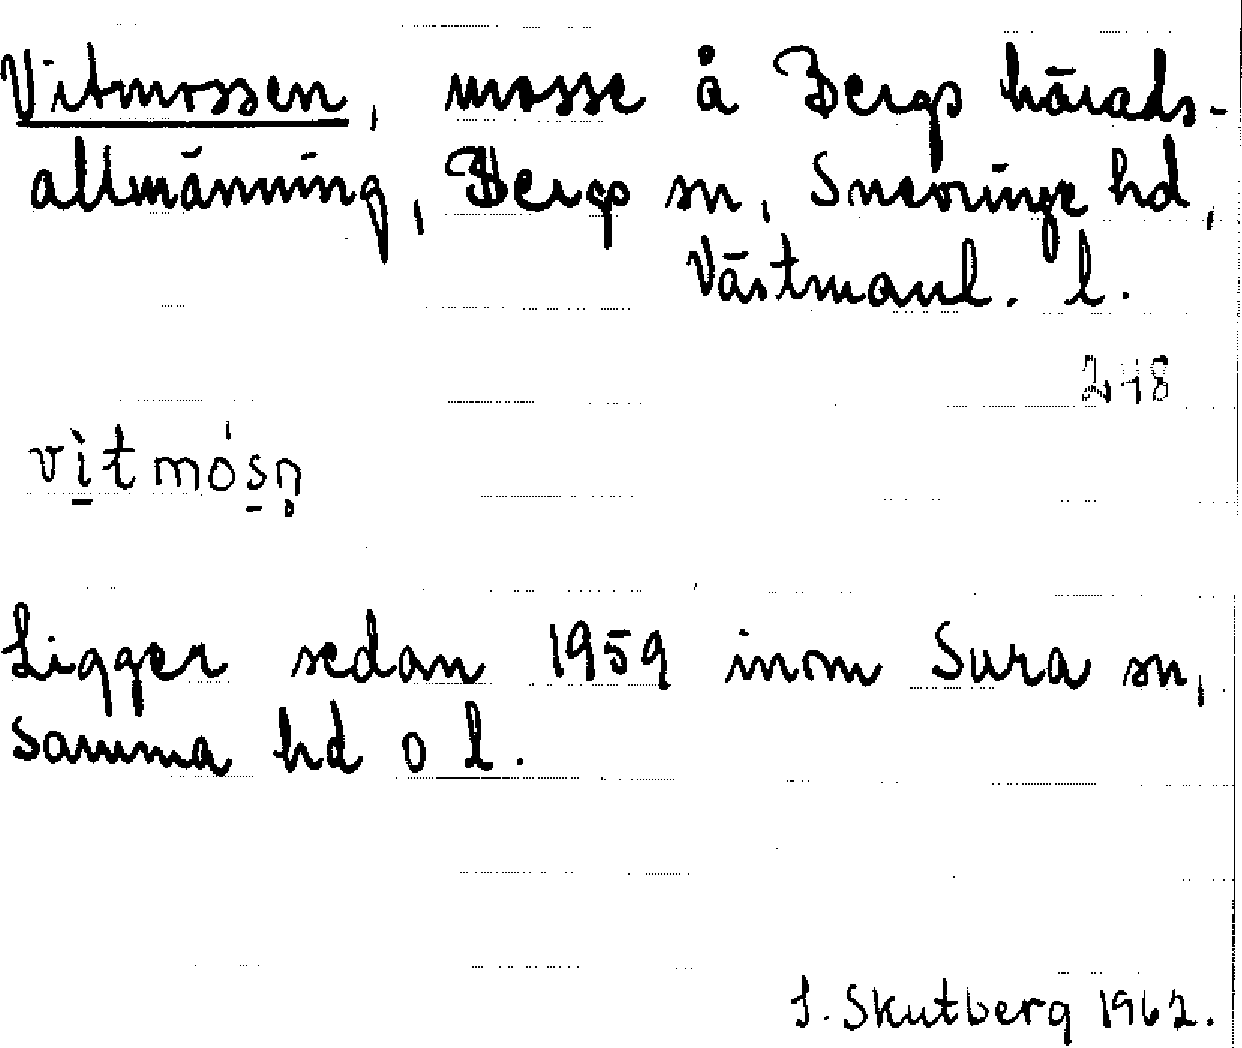 Vitmossen, mosse å Bergs härads-
allmänning, Bergs sn, Snevringe hd,
Västmanl. l.
248
vìtmósn̥
Ligger sedan 1959 inom Sura sn,
samma hd o l.
S. Skutberg 1962.